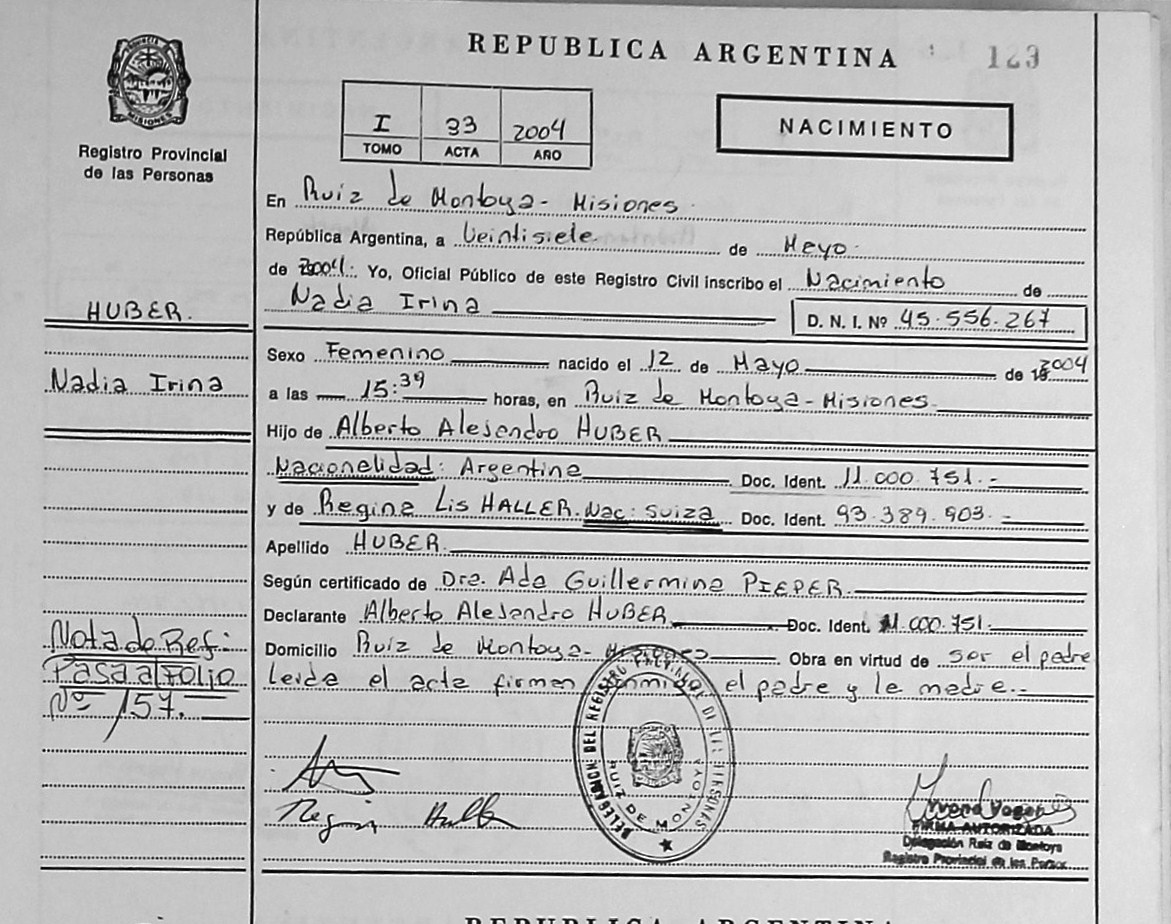 REPUBLICA ARGENTINA
123
PROVINCIA DE MISIONES
Registro Provincial
de las Personas
I 33 2004
TOMO ACTA AÑO
NACIMIENTO
En Ruiz de Montoya - Misiones
República Argentina, a Veintisiete de Mayo
de 2004. Yo, Oficial Público de este Registro Civil inscribo el Nacimiento de
Nadia Irina D. N. I. Nº 45.556.267
HUBER.
Nadia Irina
Sexo Femenino nacido el 12 de Mayo de 2004
a las 15:39 horas, en Ruiz de Montoya - Misiones.
Hijo de Alberto Alejandro HUBER
Nacionalidad: Argentina Doc. Ident. 11.000.751.-
y de Regina Lis HALLER. Nac: Suiza Doc. Ident. 93.389.903.-
Apellido HUBER.
Según certificado de Dra. Ada Guillermina PIEPER.
Declarante Alberto Alejandro HUBER Doc. Ident. 11.000.751.
Domicilio Ruiz de Montoya - Misiones. Obra en virtud de ser el padre
Leida el acta firman conmigo el padre y la madre.-
Nota de Ref:
Pasa al Folio
Nº 157.
DELEGACION DEL REGISTRO PROVINCIAL DE LAS PERSONAS
RUIZ DE MONTOYA
FIRMA AUTORIZADA
Delegación Ruiz de Montoya
Registro Provincial de las Person.
REPUBLICA ARGENTINA